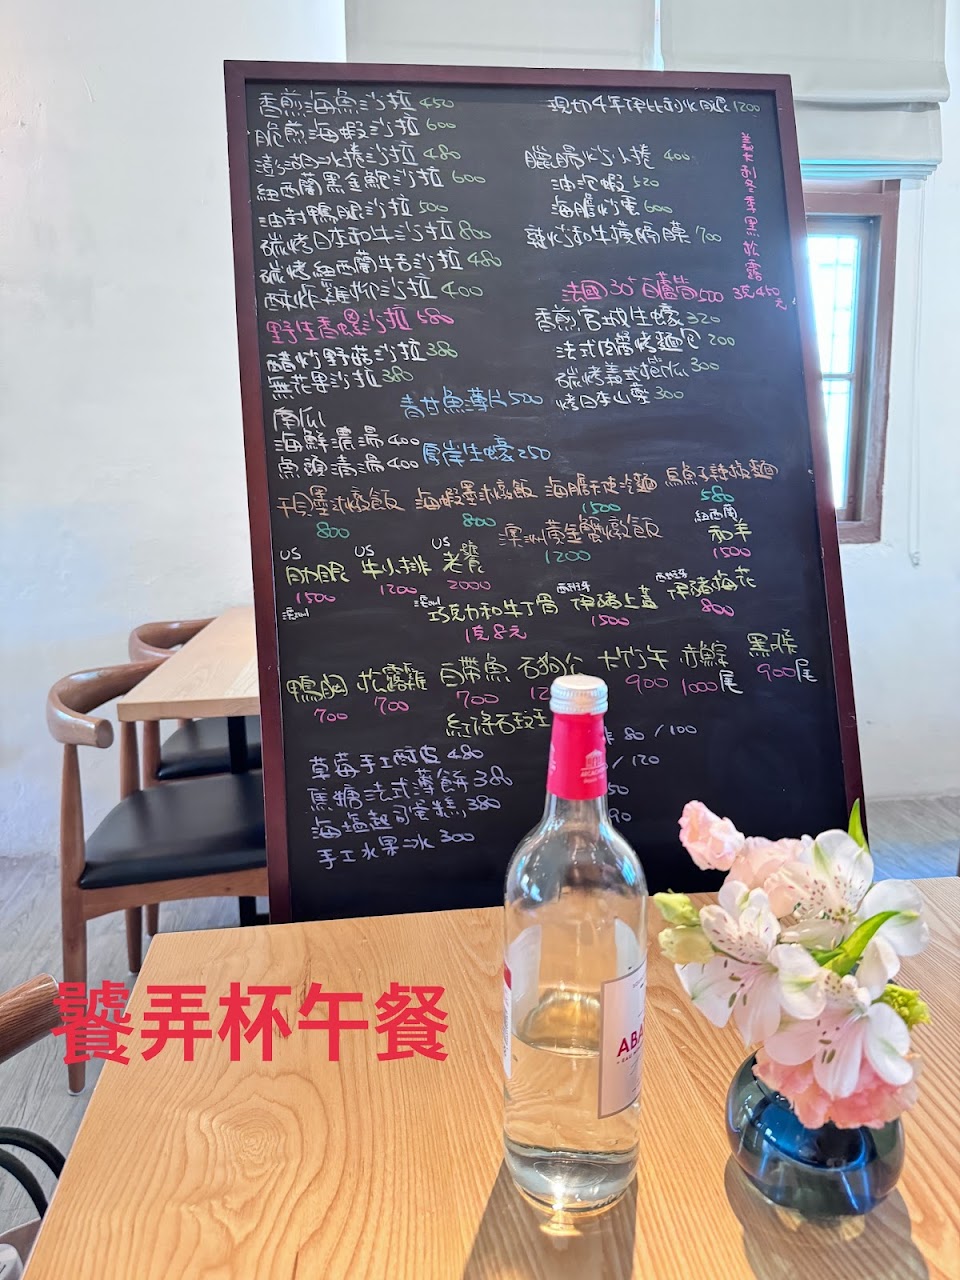 香煎海魚沙拉 450
脆煎海蝦沙拉 600
澎湖小卷沙拉 480
紐西蘭黑金鮑沙拉 600
油封鴨腿沙拉 500
碳烤日本和牛沙拉 800
碳烤紐西蘭牛舌沙拉 480
酥炸雞柳沙拉 400
野生香螺沙拉 580
醋炒野菇沙拉 380
無花果沙拉 380
南瓜
海鮮濃湯 400
魚頭清湯 400
青甘魚薄片 500
厚岸生蠔 250
現切4年伊比利火腿 1200
臘腸炒小捲 400
油泡蝦 520
海膽炒蛋 600
辣炒和牛橫膈膜 700
義大利冬季黑松露
3克450元
法國30°白蘆筍 500
香煎宮城生蠔 320
法式肉醬烤麵包 200
碳烤義式櫛瓜 300
烤日本山藥 300
干貝墨汁燉飯 800
海蝦墨汁燉飯 800
海膽天使冷麵 1500
烏魚子辣椒麵 580
澳洲黃金蟹燉飯 1200
紐西蘭
和羊
1500
US
肋眼
1500
US
牛小排
1200
US
老饕
2000
澳洲
澳洲
巧克力和牛丁骨
1克8元
西班牙
伊豬上蓋
1500
西班牙
伊豬梅花
800
鴨胸 700
松露雞 700
白帶魚 700
石狗公
大竹午 900
赤鯮 1000尾
黑喉 900尾
紅條石斑
草莓手工酥皮 480
焦糖法式薄餅 380
海塩起司蛋糕 380
手工水果冰 300
80 / 100
/ 120
50
90
ABA
饕弄杯午餐